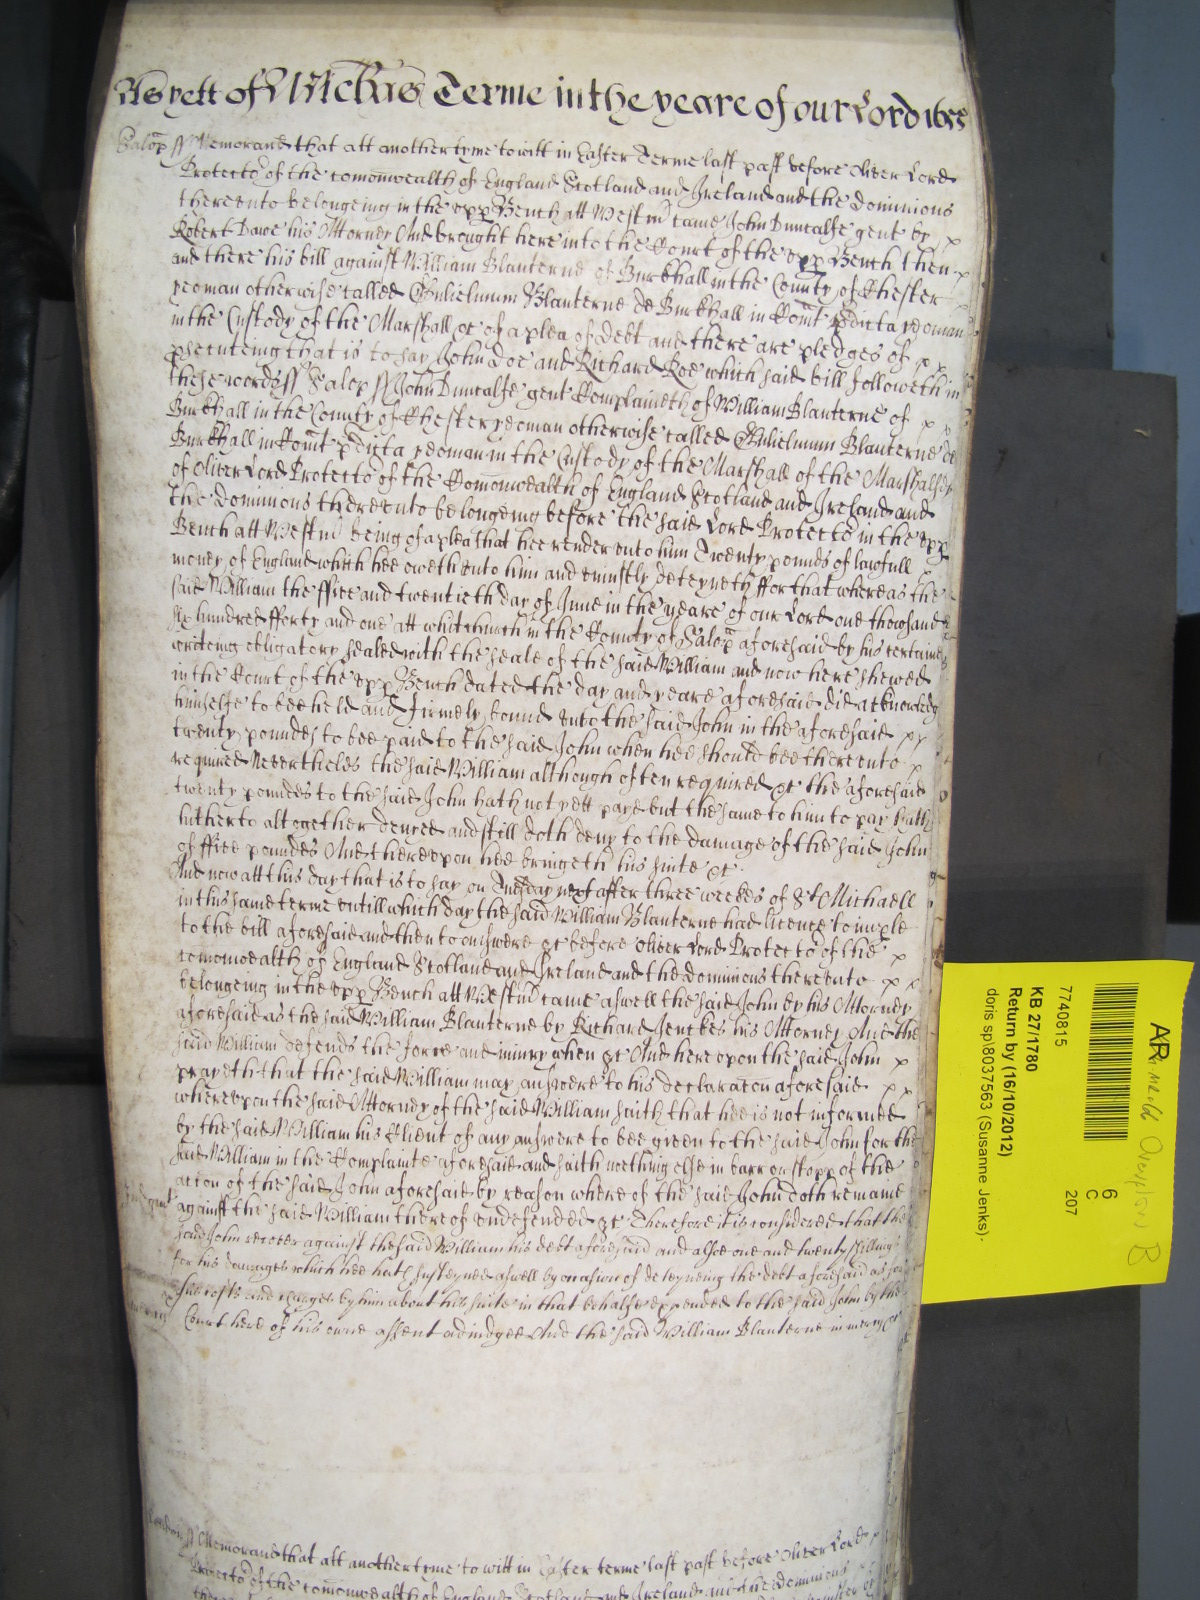 As yett of Michas Terme in the yeare of our Lord 1655
Salop ss Memorand that att another tyme to witt in Easter Terme last past before Oliver Lord
Protector of the comonwealth of England Scotland and Ireland and the dominions
thereunto belongeing in the upp Bench att Westm came John Duncalfe gent by
Robert Dawe his Attorney And brought here into the Court of the upp Bench then
and there his bill against William Blanterne of Burkhall in the County of Chester
yeoman otherwise called Gulielmum Blanterne de Burkhall in Comt pdicta yeoman
in the Custody of the Marshall &c of a plea of debt and there are pledges of
psecuteing that is to say John Doe and Richard Roe which said bill followeth in
these words ss Salop ss John Duncalfe gent Complaineth of William Blanterne of
Burkhall in the County of Chester yeoman otherwise called Gulielmum Blanterne de
Burkhall in Comt pdicta yeoman in the Custody of the Marshall of the Marshalsey
of Oliver Lord Protector of the Comonwealth of England Scotland and Ireland and
the dominions thereunto belongeing before the said Lord Protector in the upp
Bench att Westm being of a plea that hee render unto him Twenty pounds of lawfull
money of England which hee oweth unto him and uniustly deteyneth ffor that whereas the
said William the ffive and twentieth day of June in the yeare of our Lord one thowsand
six hundred fforty and one att whitchurch in the County of Salop aforesaid by his certaine
writeing obligatory sealed with the seale of the said William and now here shewed
in the Court of the upp Bench dated the day and yeare aforesaid did acknowledg
himselfe to bee held and firmely bound unto the said John in the aforesaid
twenty poundes to bee paid to the said John when hee should bee thereunto
required Neverthelesse the said William although often required &c the aforesaid
twenty poundes to the said John hath not yett payd but the same to him to pay hath
hitherto altogether denyed and still doth deny to the damage of the said John
of ffive poundes And thereupon hee bringeth his suite &c
And now att this day that is to say on Tuesday next after three weekes of St Michaell
in this same terme untill which day the said William Blanterne had licence to imple
to the bill aforesaid and then to answere &c before Oliver Lord Protector of the
comonwealth of England Scotland and Ireland and the dominions thereunto
belongeing in the upp Bench att Westm came aswell the said John by his Attorney
aforesaid as the said William Blanterne by Richard Jenckes his Attorney And the
said William defends the force and iniury when &c And hereupon the said John
prayeth that the said William may answere to his declaraton aforesaid
whereupon the said Attorney of the said William saith that hee is not informed
by the said William his Client of any answere to bee given to the said John for the
said William in the Complainte aforesaid and saith nothing else in barr or stopp of the
acton of the said John aforesaid by reason whereof the said John doth remaine
against the said William thereof undefended &c Therefore it is considered that the
said John recover against the said William his debt aforesaid and alsoe one and twenty shillings
for his damages which hee hath susteyned aswell by occasion of deteyneing the debt aforesaid as for
his costs and charges by him about his suite in that behalfe expended to the said John by the
Court here of his owne assent adiudged And the said William Blanterne in mercy &c
London ss Memorand that att another tyme to witt in Easter terme last past before Oliver Lord
Protector of the comonwealth of England Scotland and Ireland and the dominions
AR
6
C
207
7740815
KB 27/1780
Return by (16/10/2012)
doris sp\8037563 (Susanne Jenks)
B